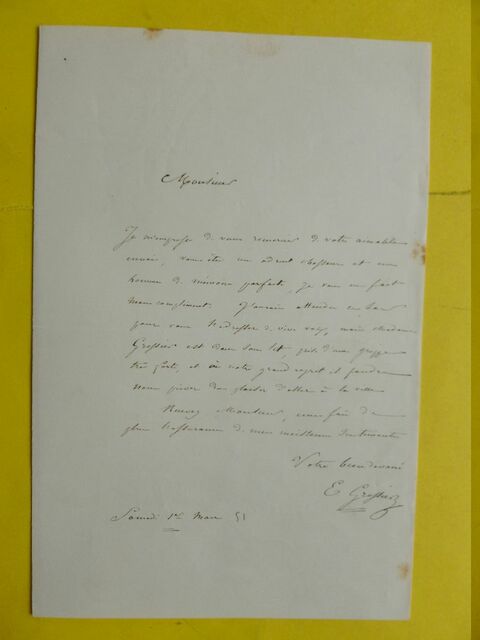 Monsieur
Je m'empresse de vous remercier de votre aimable
envoi, vous êtes un adroit chasseur et un
homme de mémoire parfaite, je vous en fais
mon compliment. J'aurais attendu ce soir
pour vous l'adresser de vive voix, mais Madame
est dans son lit, prise d'une grippe
très forte, et à notre grand regret il faudra
nous priver du plaisir d'aller à la
Recevez Monsieur, une fois de
plus l'assurance de mes meilleurs sentiments
Votre bien dévoué
E
Samedi 1er Mars 51